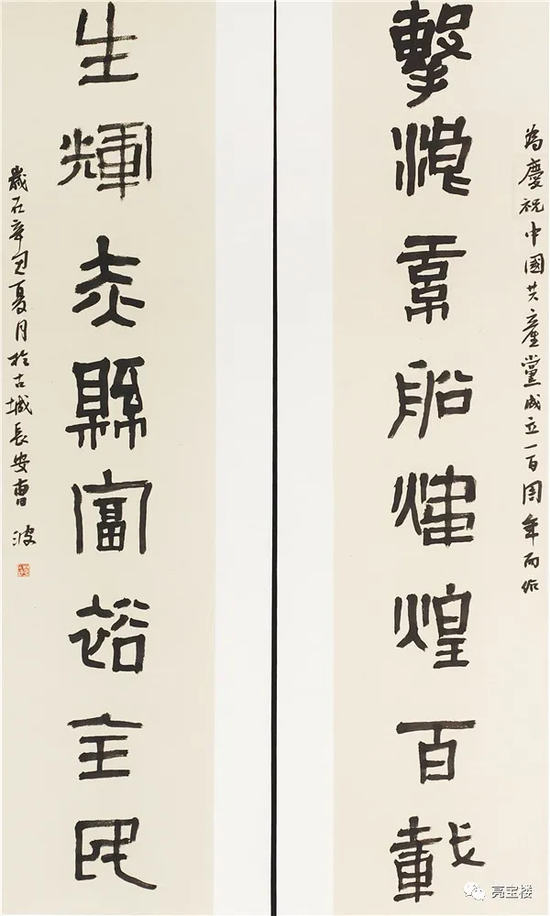 為慶祝中國共產黨成立一百周年而作
擊浪紅船煒煌百載
生輝赤縣富裕全民
歲在辛丑夏月於古城長安曹波
亮宝楼